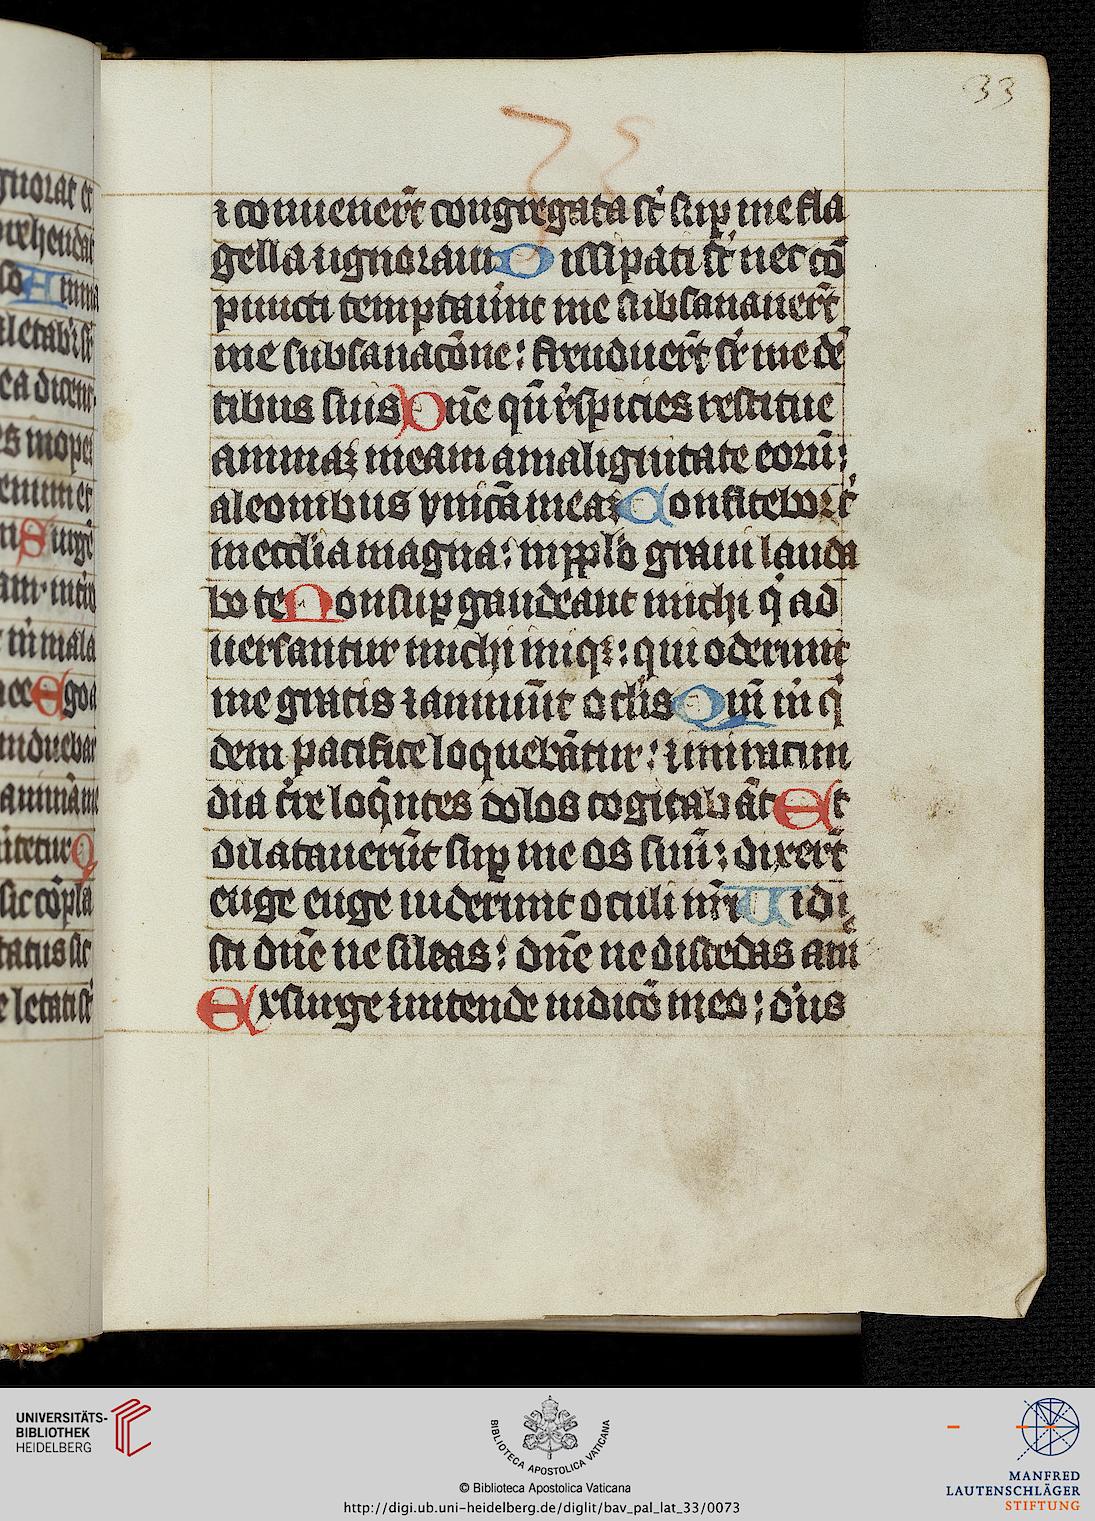 33
⁊ conueuer̄t congregata sūt sup me fla
gella ⁊ ignoraui Dissipati sūt nec cō
puncti temptauūt me subsanauer̄t
me subsanacōne: frenduer̄t sr̄ me dē
tibus suis Dn̄e qn̄ respicies restitue
animaꝫ meam a malignitate eorū:
a leonibus vnicā meaꝫ Confitebor t̄
in ecclia magna: in pplo graui lauda
bo te Non sup gaudeant michi q̄ ad
uersantur michi iniqꝫ: qui oderunt
me gratis ⁊ annuūt oclis Qm̄ m̄ q̄
dem pacifice loquebātur: ⁊ in iracun
dia t̄re loq̄ntes dolos cogitabāt Et
dilatauerūt sup me os suū: dixer̄t
euge euge uiderunt oculi nr̄i Vidi
sti dn̄e ne sileas: dn̄e ne discedas a me
Exsurge ⁊ intende iudicō meo: d'us
gnorat et
prehendat
so Anima
letabit sr̄
ea dicent
inope
Surgē
in mala
Ego a
induebar
animā me
Q
sic cōpla
tatus sic
letati sūt
UNIVERSITÄTS-
BIBLIOTHEK
HEIDELBERG
BIBLIOTECA APOSTOLICA VATICANA
© Biblioteca Apostolica Vaticana
http://digi.ub.uni-heidelberg.de/diglit/bav_pal_lat_33/0073
MANFRED
LAUTENSCHLÄGER
STIFTUNG